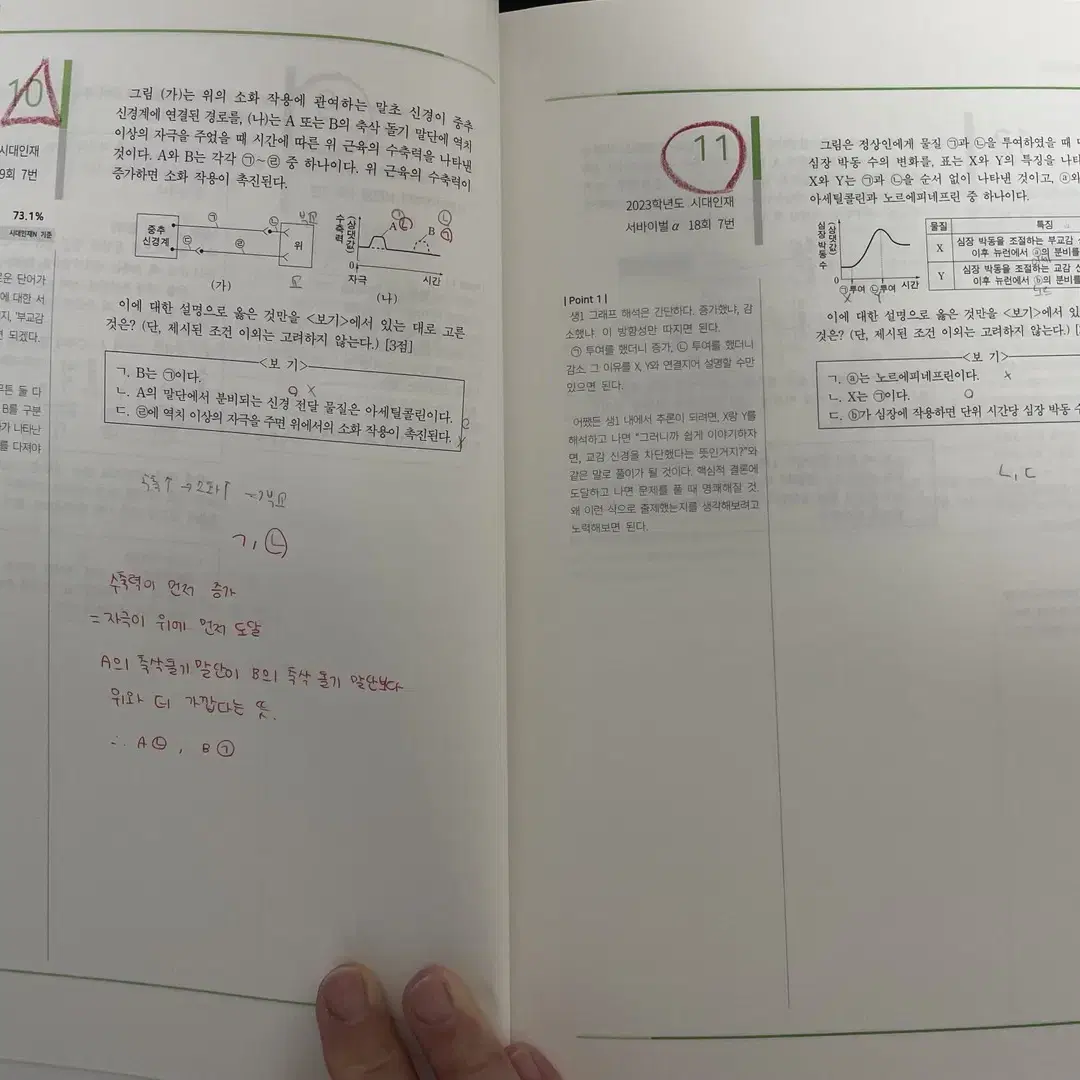 10
시대인재
9회 7번
73.1%
시대인재N 기준
그림 (가)는 위의 소화 작용에 관여하는 말초 신경이 중추
신경계에 연결된 경로를, (나)는 A 또는 B의 축삭 돌기 말단에 역치
이상의 자극을 주었을 때 시간에 따른 위 근육의 수축력을 나타낸
것이다. A와 B는 각각 ㉠~㉣ 중 하나이다. 위 근육의 수축력이
증가하면 소화 작용이 촉진된다.
중추
신경계
㉠
㉡
㉢
㉣
위
부교
(가)
수축력
(상댓값)
0
A
B
㉡
㉠
자극
시간
(나)
이에 대한 설명으로 옳은 것만을 <보기>에서 있는 대로 고른
것은? (단, 제시된 조건 이외는 고려하지 않는다.) [3점]
<보 기>
ㄱ. B는 ㉠이다.
ㄴ. A의 말단에서 분비되는 신경 전달 물질은 아세틸콜린이다.
ㄷ. ㉣에 역치 이상의 자극을 주면 위에서의 소화 작용이 촉진된다.
수축↑ → 소화↑ ⇒ 부교
ㄱ, ㄴ
수축력이 먼저 증가
= 자극이 위에 먼저 도달
A의 축삭돌기 말단이 B의 축삭 돌기 말단보다
위와 더 가깝다는 뜻.
∴ A ㉡, B ㉠
운 단어가
에 대한 서
지, '부교감
면 되겠다.
무튼 둘 다
B를 구분
가 나타난
를 다져야
11
2023학년도 시대인재
서바이벌 α 18회 7번
| Point 1 |
생1 그래프 해석은 간단하다. 증가했냐, 감
소했냐. 이 방향성만 따지면 된다.
㉠ 투여를 했더니 증가, ㉡ 투여를 했더니
감소. 그 이유를 X, Y와 연결지어 설명할 수만
있으면 된다.
어쨌든 생1 내에서 추론이 되려면, X랑 Y를
해석하고 나면 "그러니까 쉽게 이야기하자
면, 교감 신경을 차단했다는 뜻인거지?"와
같은 말로 풀이가 될 것이다. 핵심적 결론에
도달하고 나면 문제를 풀 때 명쾌해질 것.
왜 이런 식으로 출제했는지를 생각해보려고
노력해보면 된다.
그림은 정상인에게 물질 ㉠과 ㉡을 투여하였을 때
심장 박동 수의 변화를, 표는 X와 Y의 특징을
X와 Y는 ㉠과 ㉡을 순서 없이 나타낸 것이고, ⓐ와
아세틸콜린과 노르에피네프린 중 하나이다.
심장 박동 수
(상댓값)
0
㉠투여 ㉡투여 시간
X Y
물질 특징
X 심장 박동을 조절하는 부교감
이후 뉴런에서 ⓐ의 분비를
Y 심장 박동을 조절하는 교감
이후 뉴런에서 ⓑ의 분비를
이에 대한 설명으로 옳은 것만을 <보기>에서
것은? (단, 제시된 조건 이외는 고려하지 않는다.)
<보 기>
ㄱ. ⓐ는 노르에피네프린이다.
ㄴ. X는 ㉠이다.
ㄷ. ⓑ가 심장에 작용하면 단위 시간당 심장 박동
ㄴ, ㄷ